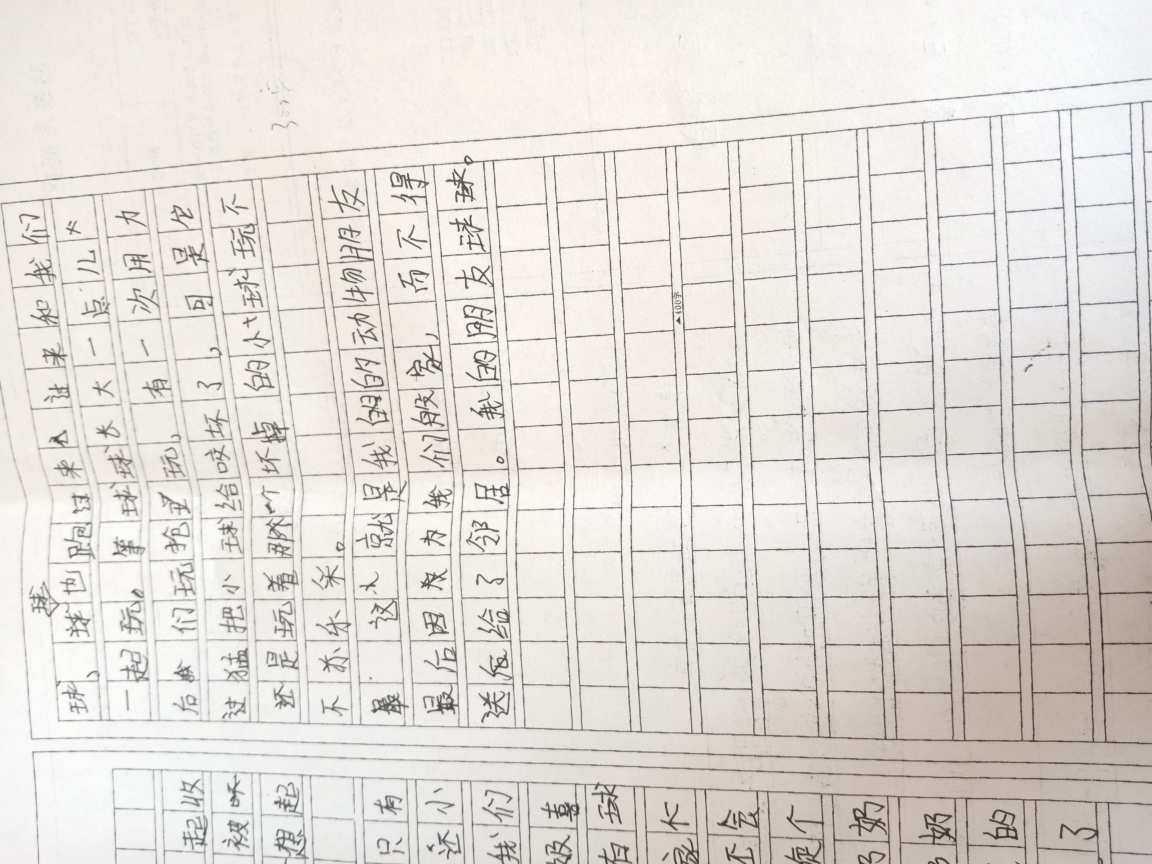 球、球球也跑过来过来和我们
一起玩。等球球长大一点儿
后我们玩抢玩,有一次用力
过猛把小球给咬坏了,可是它
还是玩着那个坏掉的小球玩不
不亦乐采。
这就是我的动物朋友
最后因为我们般家,而不得
送给了邻居。我的朋友球球。
▲400字
起收
被
想起
只有
还小
我们
级喜
球
家
不会
个
奶
奶
的
了